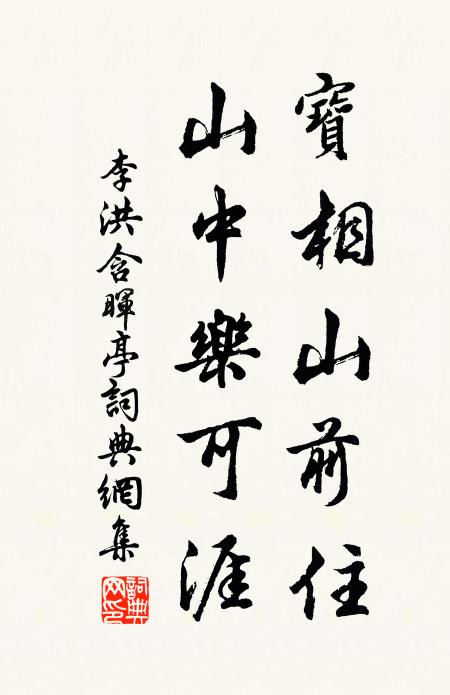 寶相山前住
山中樂可涯
李洪含暉亭詞典網集
詞典網印